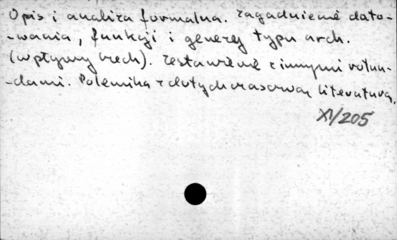 Opis i analiza formalna. Zagadnienie dato-
-wania, funkcji i genezy typu arch.
(wpływy czech). Zestawienie z innymi rotun-
-dami. Polemika z dotychczasową literaturą.
XV/205